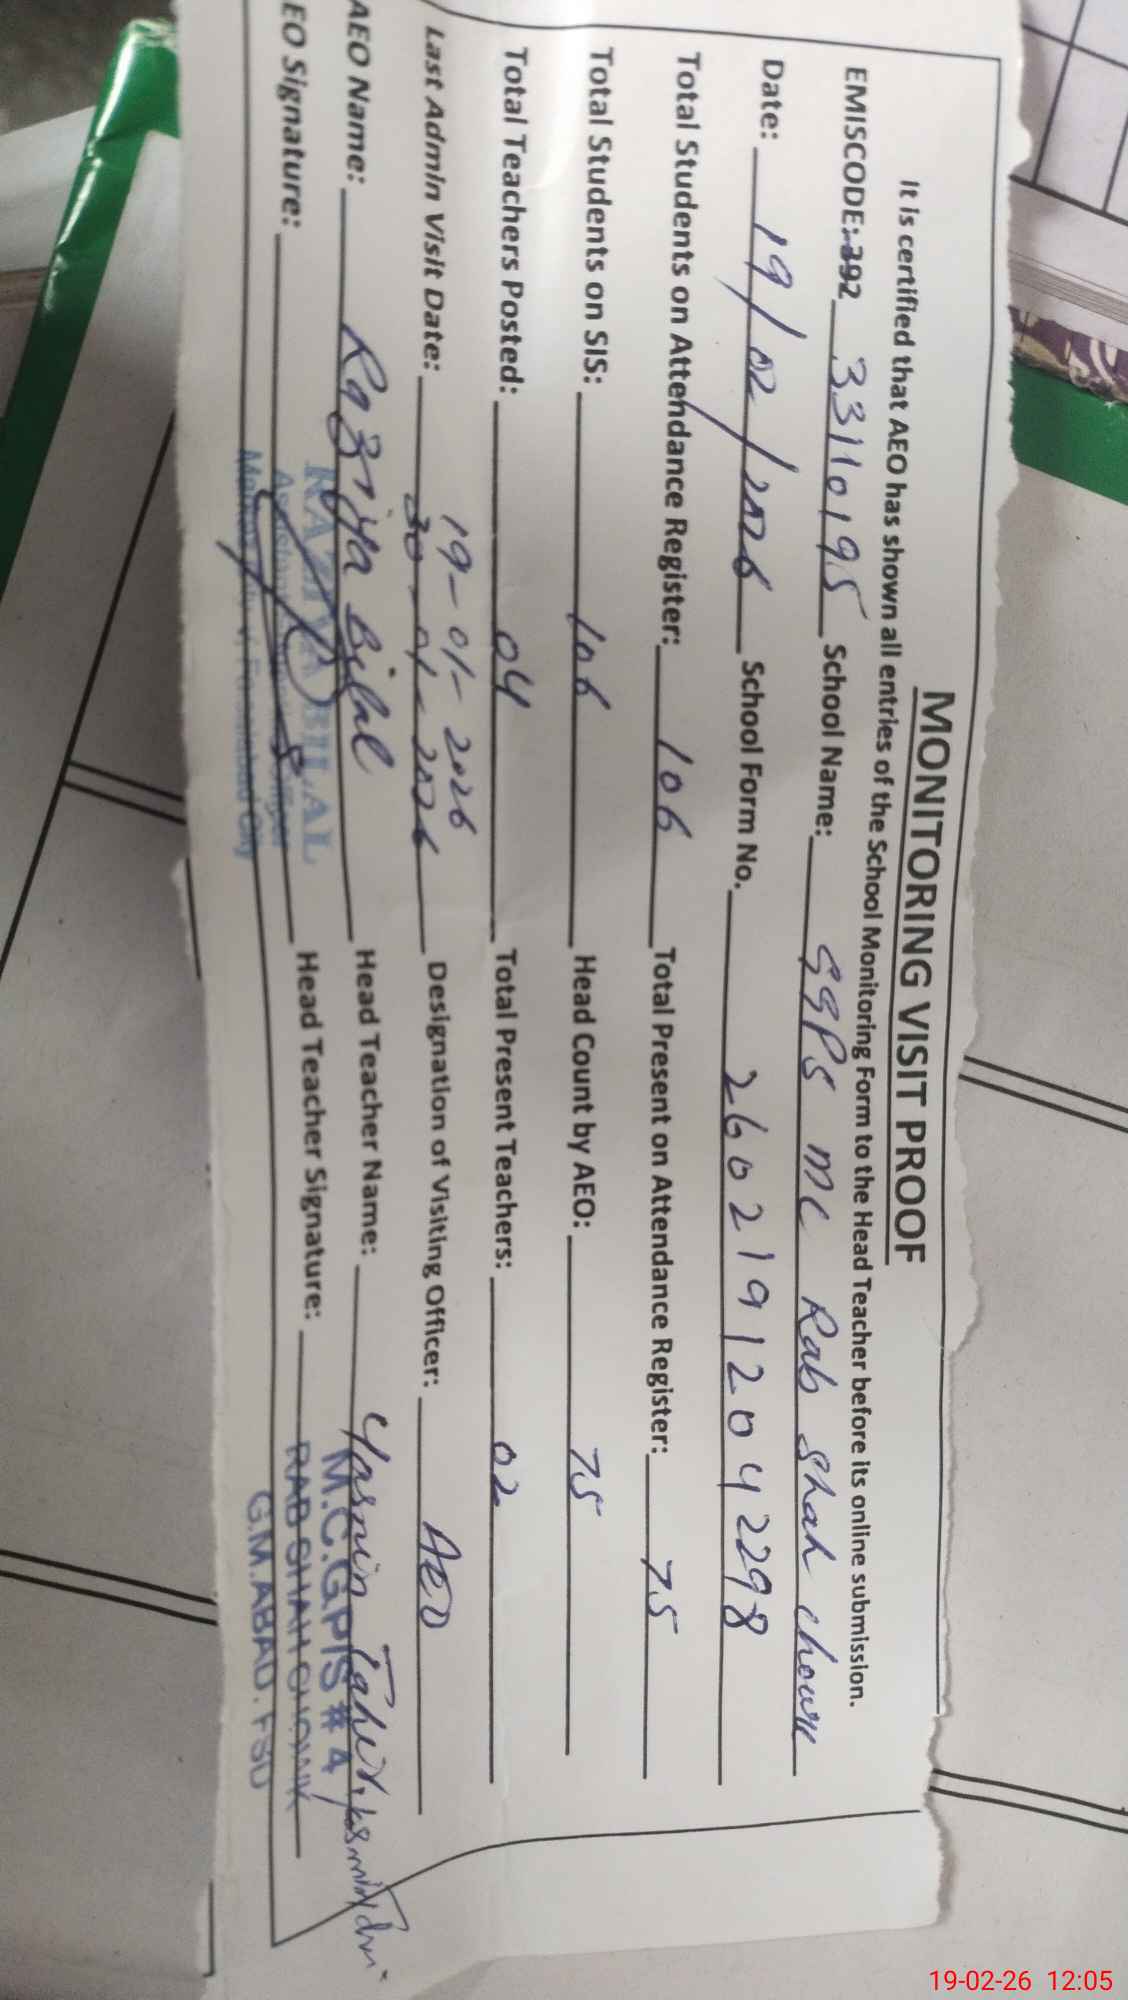 MONITORING VISIT PROOF
It is certified that AEO has shown all entries of the School Monitoring Form to the Head Teacher before its online submission.
EMISCODE:-392 33110195 School Name: GGPS MC Rab Shah chowk
Date: 19/02/2026 School Form No. 26021912042298
Total Students on Attendance Register: 106 Total Present on Attendance Register: 75
Total Students on SIS: 106 Head Count by AEO: 75
Total Teachers Posted: 04 Total Present Teachers: 02
19-01-2026
Last Admin Visit Date: 30-01-2026 Designation of Visiting Officer: AEO
AEO Name: Raziya Bilal Head Teacher Name: Yasmin Tahir
RAZIYA BILAL
M.C.GP/S # 4
EO Signature: Head Teacher Signature:
RAB SHAH CHOWK
G.M.ABAD. FSD
19-02-26 12:05